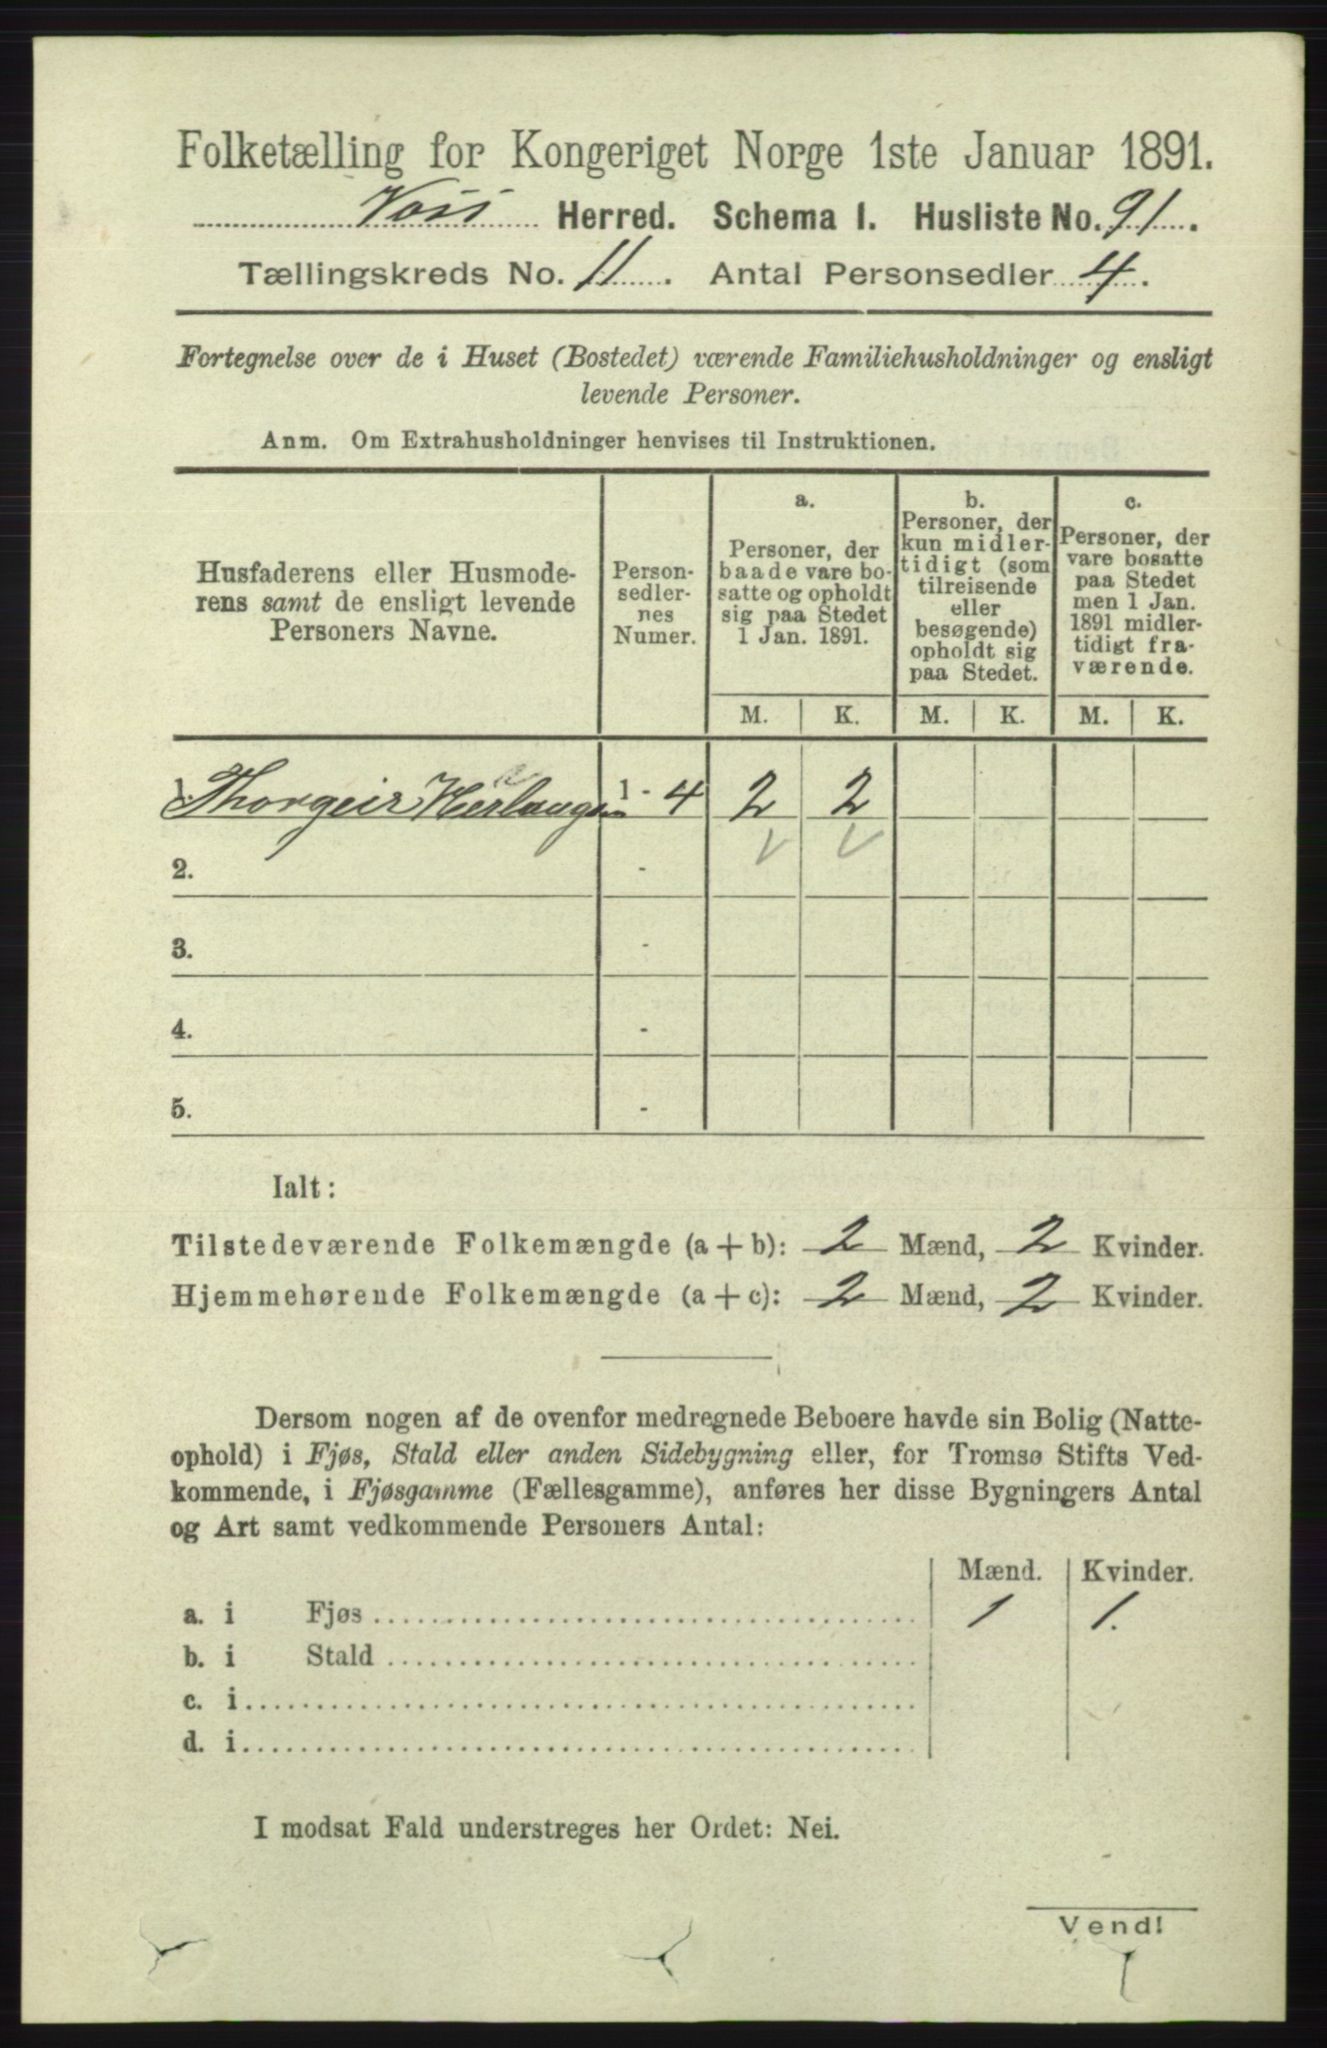 Folketælling for Kongeriget Norge 1ste Januar 1891.
Voss Herred. Schema 1. Husliste No. 91.
Tællingskreds No. 11. Antal Personsedler 4.
Fortegnelse over de i Huset (Bostedet) værende Familiehusholdninger og ensligt
levende Personer.
Anm. Om Extrahusholdninger henvises til Instruktionen.
Husfaderens eller Husmode-
rens samt de ensligt levende
Personers Navne.
Person-
sedler-
nes
Numer.
a.
Personer, der
baade vare bo-
satte og opholdt
sig paa Stedet
1 Jan. 1891.
b.
Personer, der
kun midler-
tidigt (som
tilreisende
eller
besøgende)
opholdt sig
paa Stedet.
c.
Personer, der
vare bosatte
paa Stedet
men 1 Jan.
1891 midler-
tidigt fra-
værende.
M. K. M. K. M. K.
1. Thorgeir 1 - 4 2 2
2. -
3. -
4. -
5. -
Ialt:
Tilstedeværende Folkemængde (a + b): 2 Mænd, 2 Kvinder.
Hjemmehørende Folkemængde (a + c): 2 Mænd, 2 Kvinder.
Dersom nogen af de ovenfor medregnede Beboere havde sin Bolig (Natte-
ophold) i Fjøs, Stald eller anden Sidebygning eller, for Tromsø Stifts Ved-
kommende, i Fjøsgamme (Fællesgamme), anføres her disse Bygningers Antal
og Art samt vedkommende Personers Antal:
Mænd. Kvinder.
a. i Fjøs 1 1.
b. i Stald
c. i
d. i
I modsat Fald understreges her Ordet: Nei.
Vend!